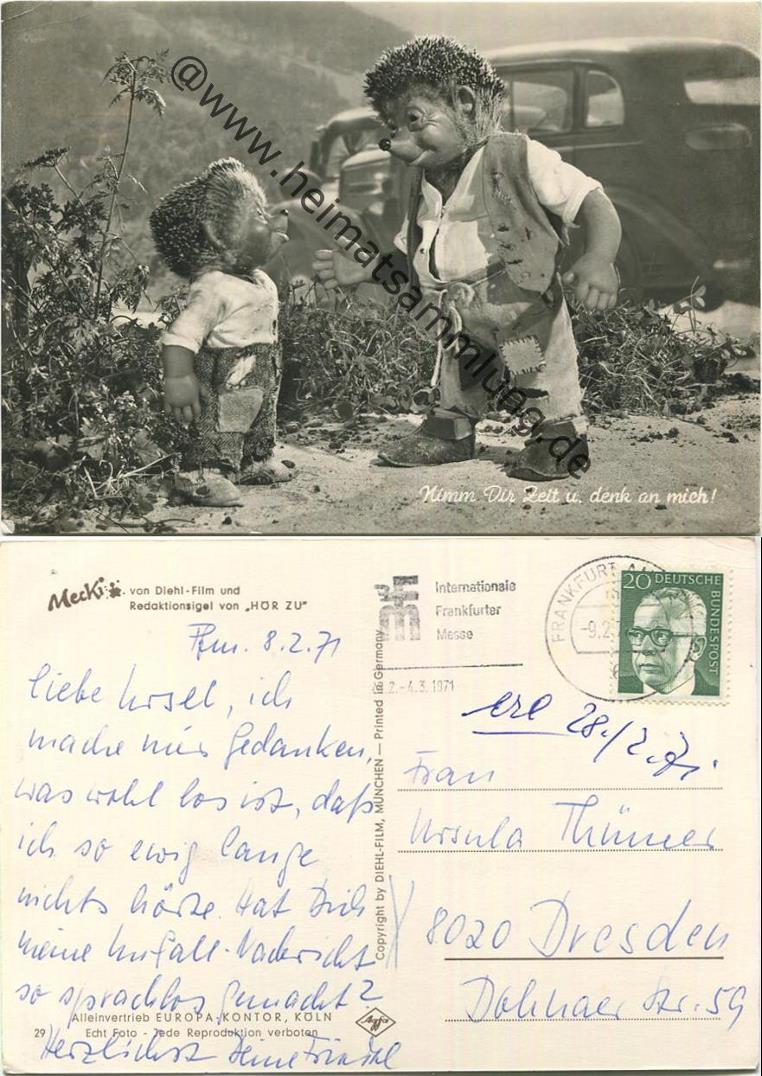 @www.heimatsammlung.de
Nimm Dir Zeit u. denk an mich!
Mecki von Diehl-Film und
Redaktionsigel von „HÖR ZU"
Internationale
Frankfurter
Messe
28.2.-4.3.1971
FRANKFURT AM
-9.2.
20 DEUTSCHE
BUNDESPOST
Ffm. 8.2.71
Liebe Ursel, ich
mache mir Gedanken,
was wohl los ist, daß
ich so ewig lange
nichts hörte. Hat Dich
meine Unfall-Nachricht
so sprachlos gemacht?
Herzlichst Deine
erl 28./2.71
Frau
Ursula Thümer
8020 Dresden
Dohnaer Str. 59
Copyright by DIEHL-FILM, MÜNCHEN — Printed in Germany
Alleinvertrieb EUROPA-KONTOR, KÖLN
29 Echt Foto - Jede Reproduktion verboten
Agfa